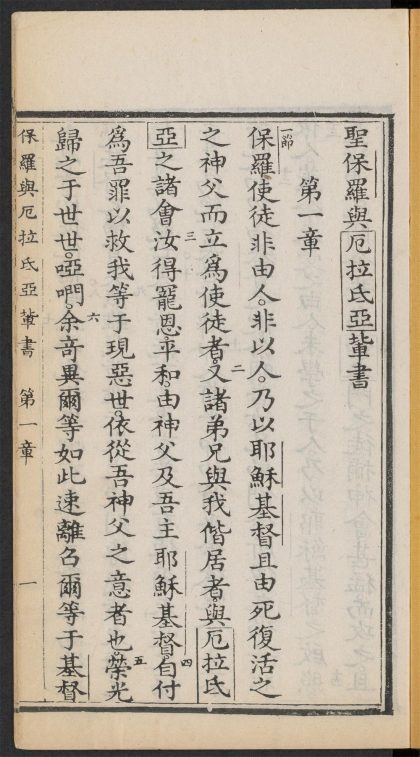 聖保羅與厄拉氏亞輩書
第一章
一節
保羅使徒非由人。非以人。乃以耶穌基督且由死復活之
之神父而立爲使徒者。二又諸弟兄與我偕居者。與厄拉氏
亞之諸會三汝得寵恩平和。由神父及吾主耶穌基督。四自付
爲吾罪以救我等于現惡世。依從吾神父之意者也。五榮光
歸之于世世。啞吶。六余竒異爾等如此速離召爾等于基督
保羅與厄拉氏亞輩書 第一章 一